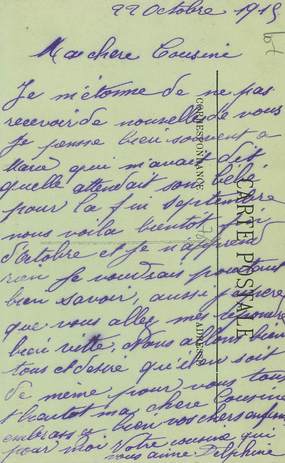 22 Octobre 1915
Ma chere Cousine
Je m'étonne de ne pas
recevoir de nouvelle de vous
Je pensse bien souvent a
Maria qui m'avait dit
quelle attendait son bébé
pour la fin Septembre
nous voila bientot fin
d'Octobre et je n'apprend
rien Je voudrais pourtant
bien savoir, aussi j'espère
que vous allez mes repondre
bien vitte, Nous allons bien
tous et desire qu'il en soit
de meme pour vous tous
A bientot ma chere Cousine
embrass bien vos chers enfants
pour moi Votre cousine qui
vous aime Delphine
CARTE POSTALE
CORRESPONDANCE
ADRESSE